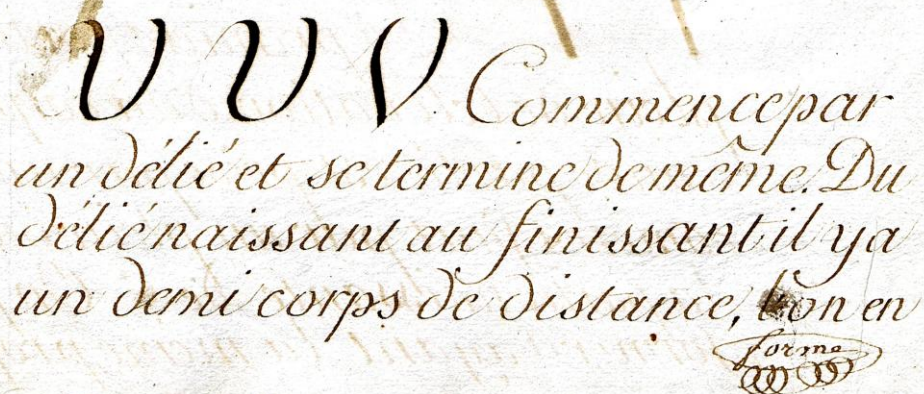 U U V Commence par
un délié et se termine de même. Du
délié naissant au finissant il y a
un demi corps de distance, l'on en
forme